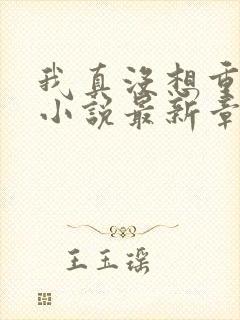 我真没想重
小说最新章
王玉瑶